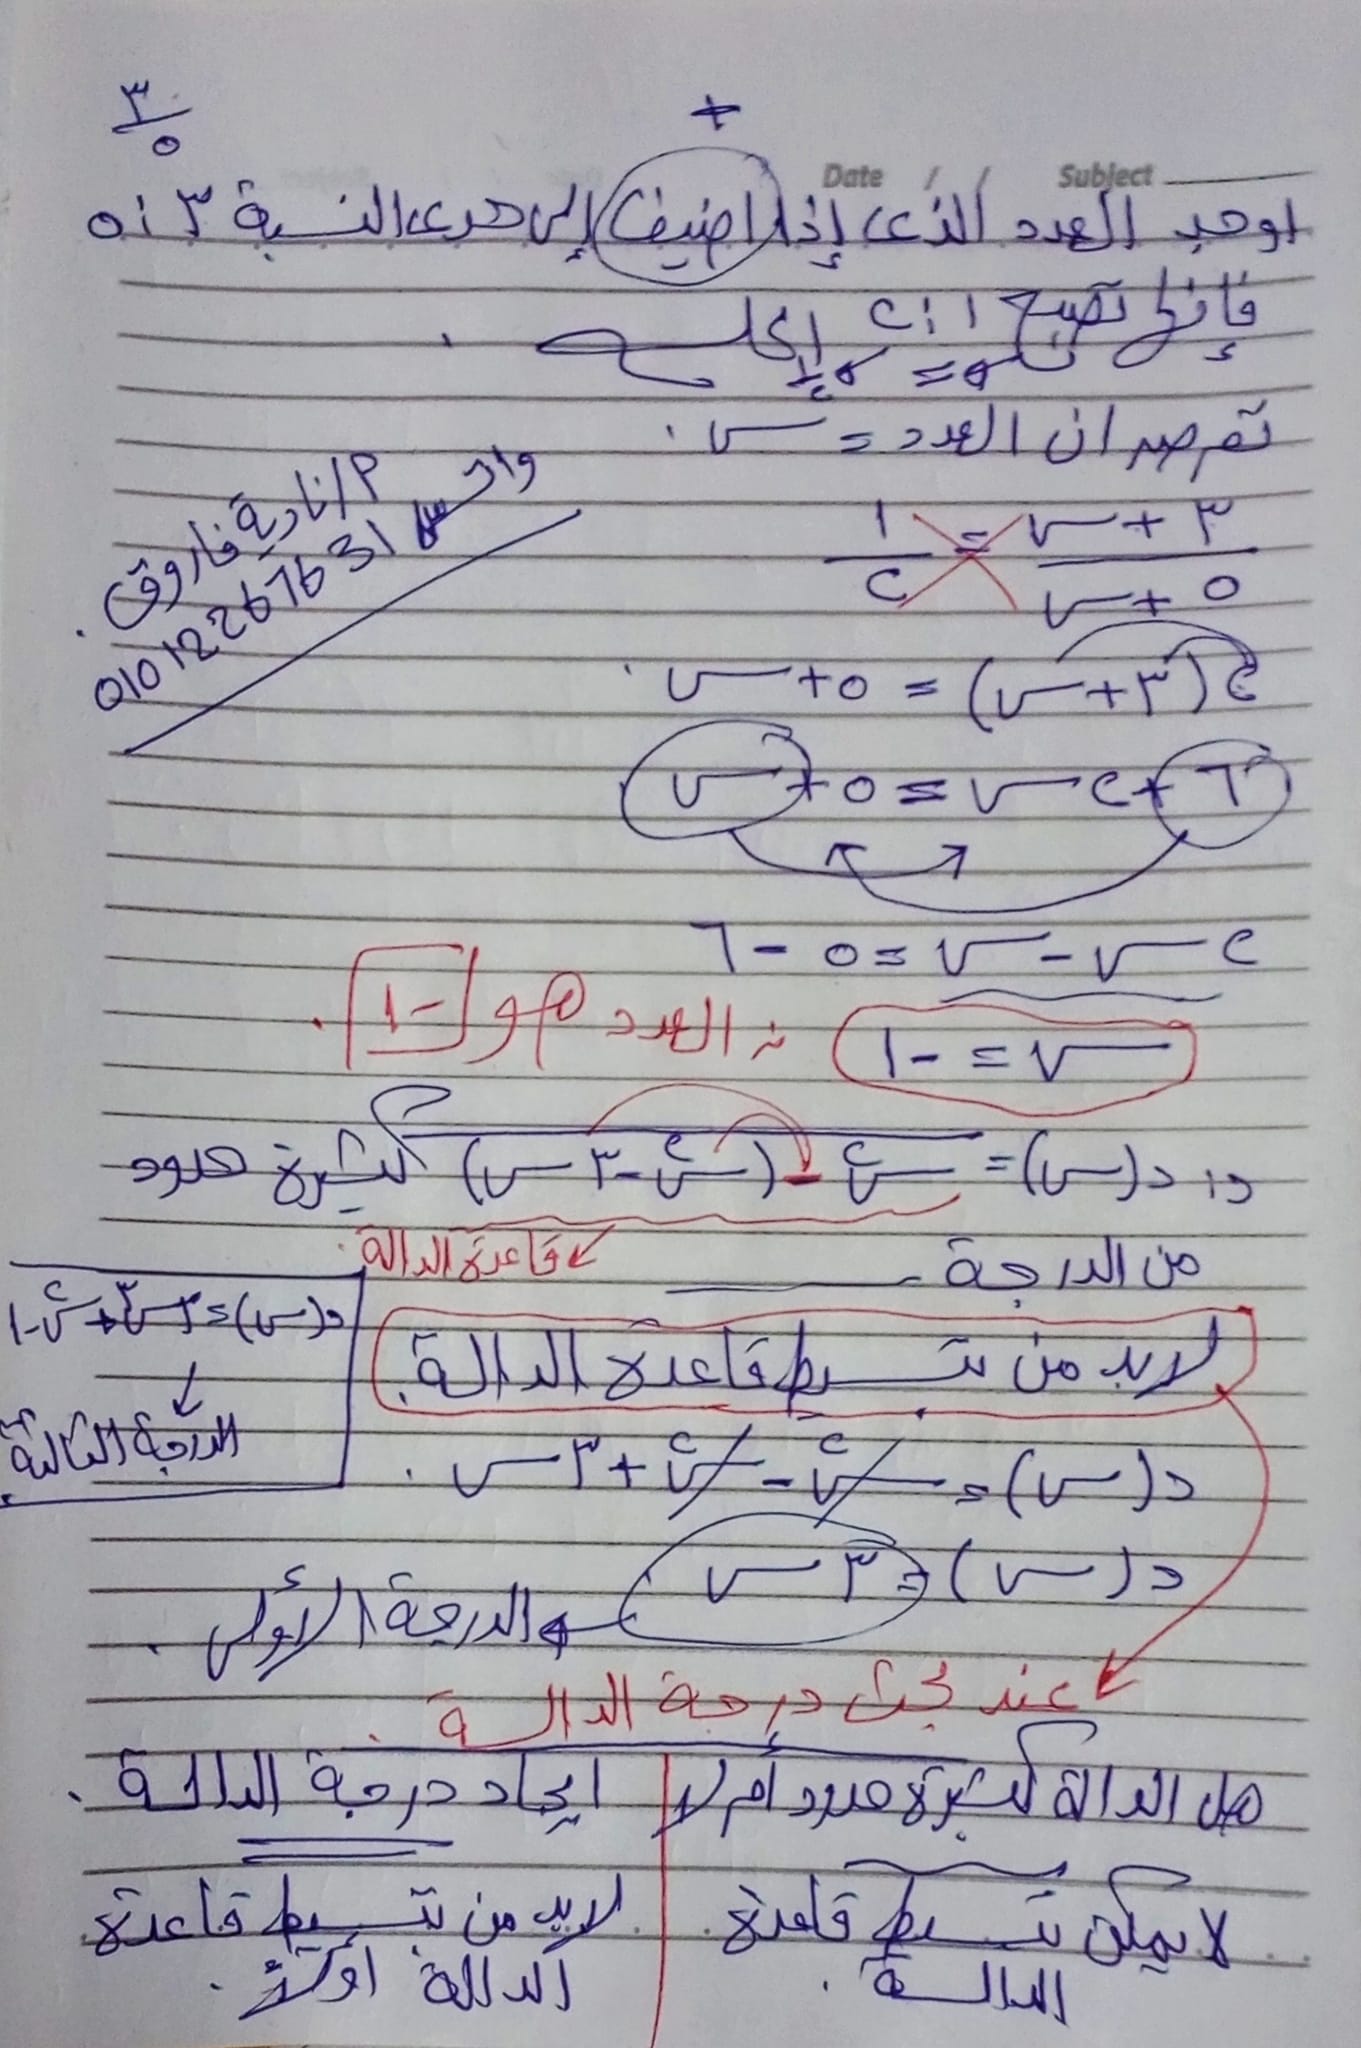 ٣/٥
+
Date / / Subject
اوجد العدد الذى إذا اضيف إلى حدى النسبة ٣ : ٥
فإنها تصبح ١ : ٢ الحل
نفرض ان العدد = س .
(٣ + س)/(٥ + س) = ١/٢
٢(٣ + س) = ٥ + س .
٦ + ٢س = ٥ + س
٢س - س = ٥ - ٦
س = -١ ∴ العدد هو -١ .
م/ نادية فاروق .
01012267631 واتس
د(س) = س٢ - (س٢ - ٣س) كثيرة حدود
قاعدة الدالة .
من الدرجة
لابد من تبسيط قاعدة الدالة .
د(س) = ٢س٣ + س٢ - ١
الدرجة الثالثة
د(س) = س٢ - س٢ + ٣س .
د(س) = ٣س
الدرجة الأولى .
عند بحث درجة الدالة .
هل الدالة كثيرة حدود أم لا
لا يمكن تبسيط قاعدة
الدالة .
ايجاد درجة الدالة .
لابد من تبسيط قاعدة
الدالة أولاً .